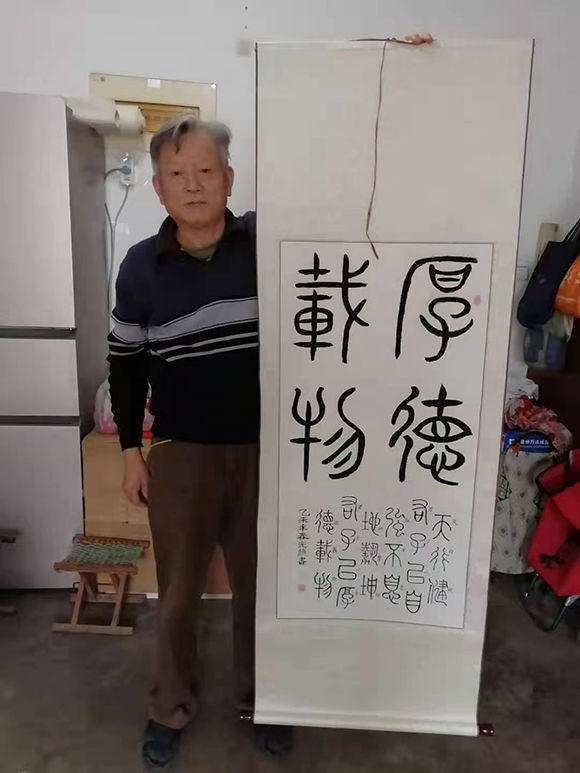 厚德
載物
天行健
君子以自
強不息
地勢坤
君子以厚
德載物
乙未 春 書